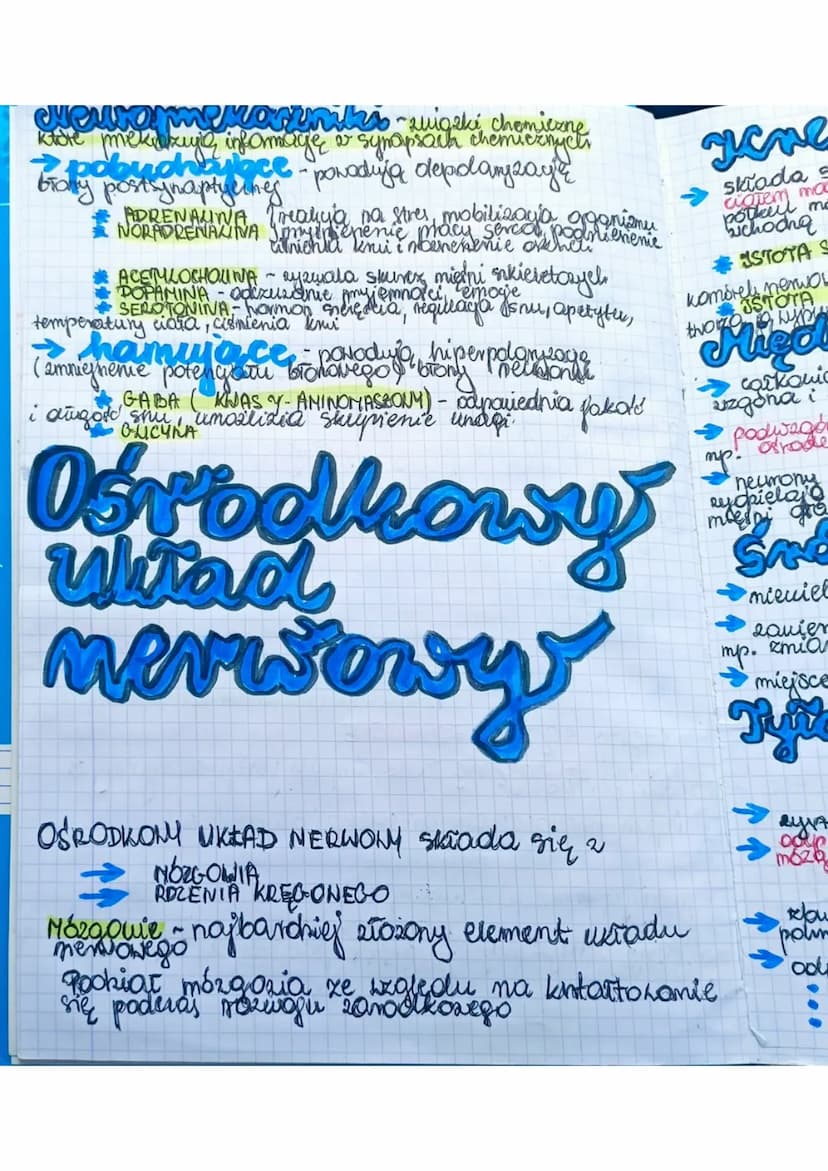 Neuroprzekaźniki - związki chemiczne
które przekazują informację w synapsach chemicznych
→ pobudzające - powodują depolaryzację
błony postsynaptycznej
* ADRENALINA
* NORADRENALINA
reakcja na stres, mobilizacja organizmu
przyśpieszenie pracy serca, podniesienie
ciśnienia krwi i rozszerzenie oskrzeli
* ACETYLOCHOLINA - wyzwala skurcz mięśni szkieletowych
* DOPAMINA - odczuwanie przyjemności, emocje
* SEROTONINA - hormon szczęścia, regulacja snu, apetytu,
temperatury ciała, ciśnienia krwi
→ hamujące - powodują hiperpolaryzację
(zmniejszenie potencjału błonowego) błony neuronu
* GABA (KWAS γ-AMINOMASŁOWY) - odpowiednia jakość
i długość snu, umożliwia skupienie uwagi
* GLICYNA
Ośrodkowy
układ
nerwowy
OŚRODKOWY UKŁAD NERWOWY składa się z
→ MÓZGOWIA
→ RDZENIA KRĘGOWEGO
Mózgowie - najbardziej złożony element układu
nerwowego
Podział mózgowia ze względu na kształtowanie
się podczas rozwoju zarodkowego
→ składa s
ciałem mo
półkul mó
wchodzą
* ISTOTA S
komórek nerwow
* ISTOTA
Międ
→ całkowic
wzgórza i
→ podwzgór
ośrodk
np.
→ neurony
wydzielają
Śró
→ niewiel
→ zawier
np. zmia
→ miejsce
Tyło